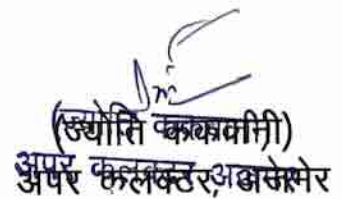 (ज्योति ककवानी)
अपर कलक्टर, अजमेर